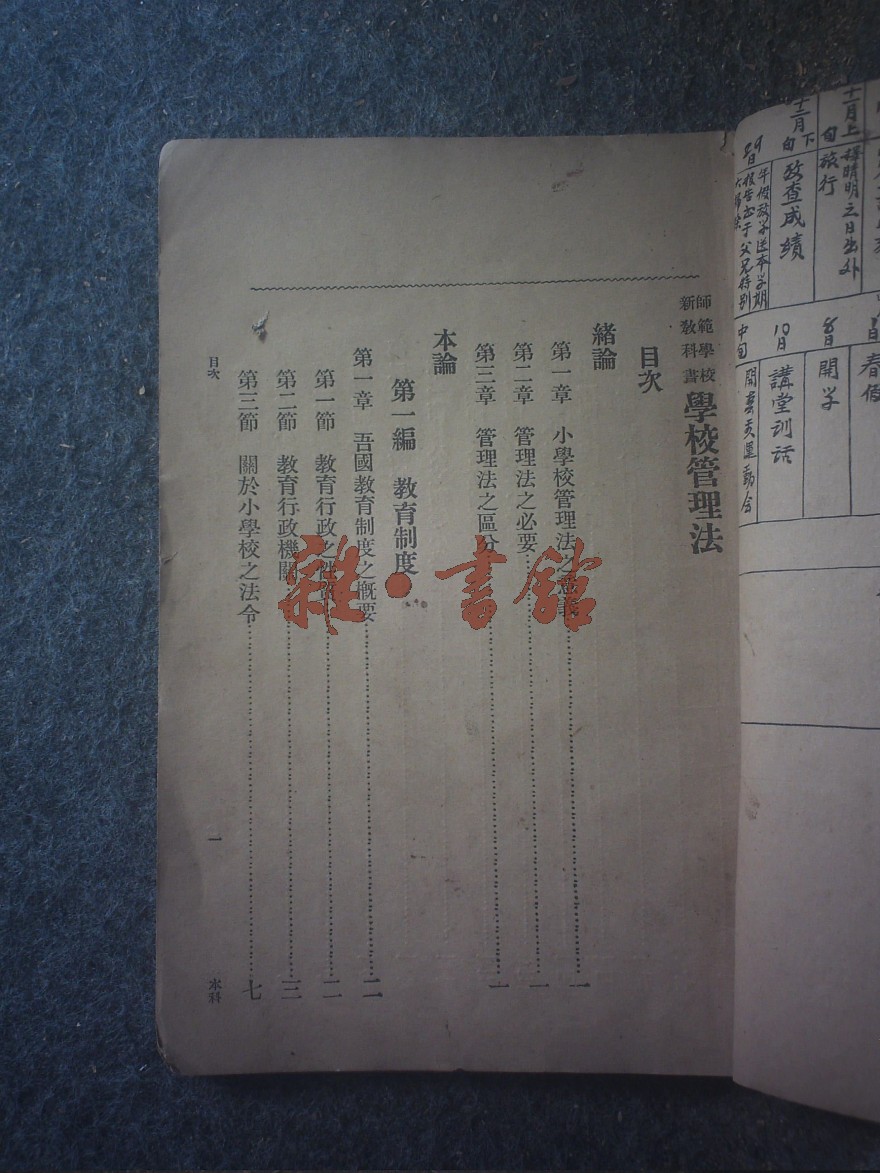 擇晴明之日出外
旅行
月下旬
攷查成績
年假放学送本学期
報告書于父兄特別
春假
8日
開学
10日
講堂訓話
中旬
運動会
師範學校
新敎科書
學校管理法
目次
緒論
第一章 小學校管理法之意義……一
第二章 管理法之必要……一
第三章 管理法之區分……一
本論
第一編 教育制度
第一章 吾國教育制度之概要……二
第一節 教育行政之性質……二
第二節 教育行政機關……三
第三節 關於小學校之法令……七
目次
一
本科
雜·書館